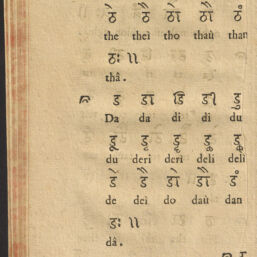 ठे ठै ठो ठौ ठं
the theì tho thaù than
ठः ॥
thâ.
ड डा डि डी डु
Da da di dì du
डू डृ डॄ डॢ डॣ
du deri derì deli delì
डे डै डो डौ डं
de deì do daù dan
डः ॥
dâ.